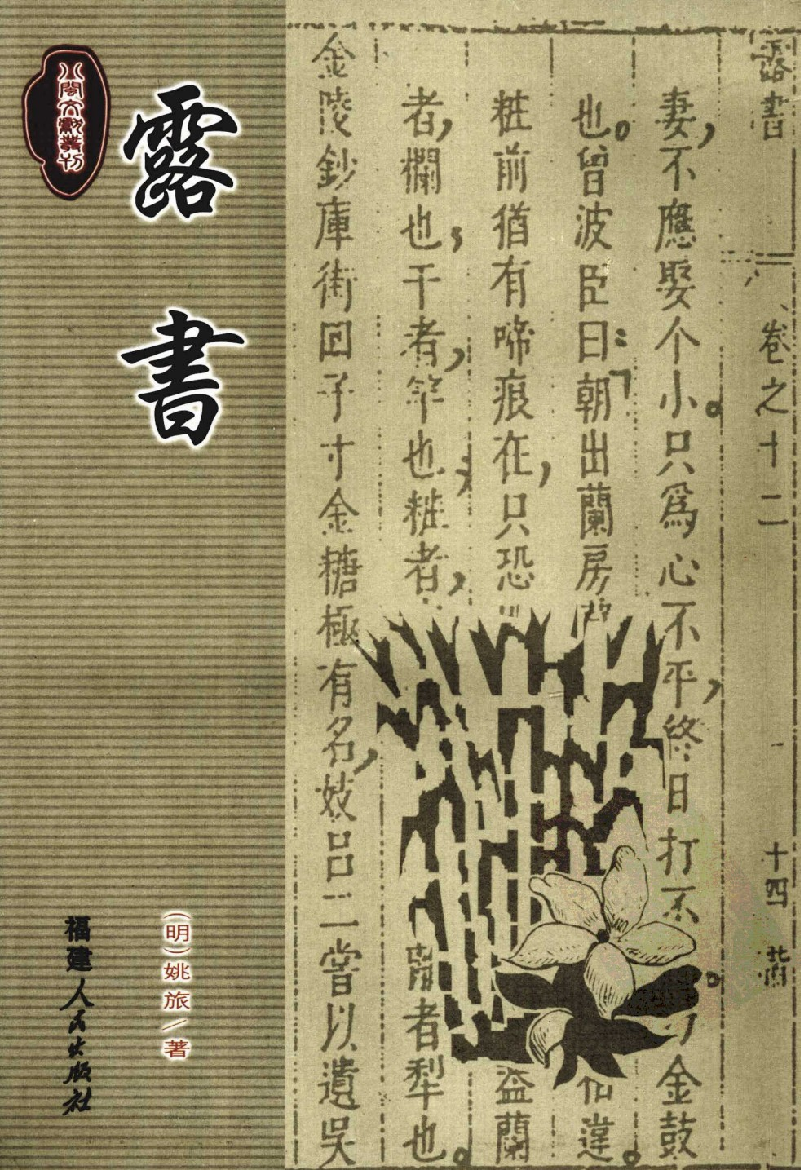 八閩文獻叢刊
露書
(明)姚旅/著
福建人民出版社
露書
卷之十二
十四
妻,不應娶个小。只爲心不平,終日打不
金鼓
也。曾波臣曰:「朝出蘭房
違。
粧前猶有啼痕在,只恐
蘭
者,欄也;干者,竿也;粧者,
者犁也。
金陵鈔庫街回子寸金糖極有名,妓吕二嘗以遺吴